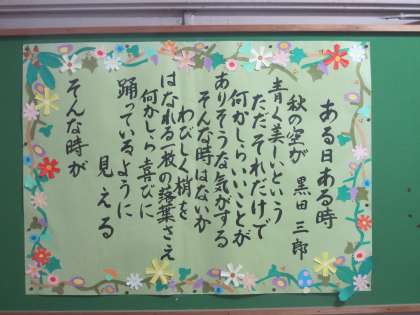 ある日ある時
黒田三郎
秋の空が
青く美しいという
ただそれだけで
何かしらいいことが
ありそうな気がする
そんな時はないか
わびしく梢を
はなれる一枚の落葉さえ
何かしら喜びに
踊っているように
見える
そんな時が